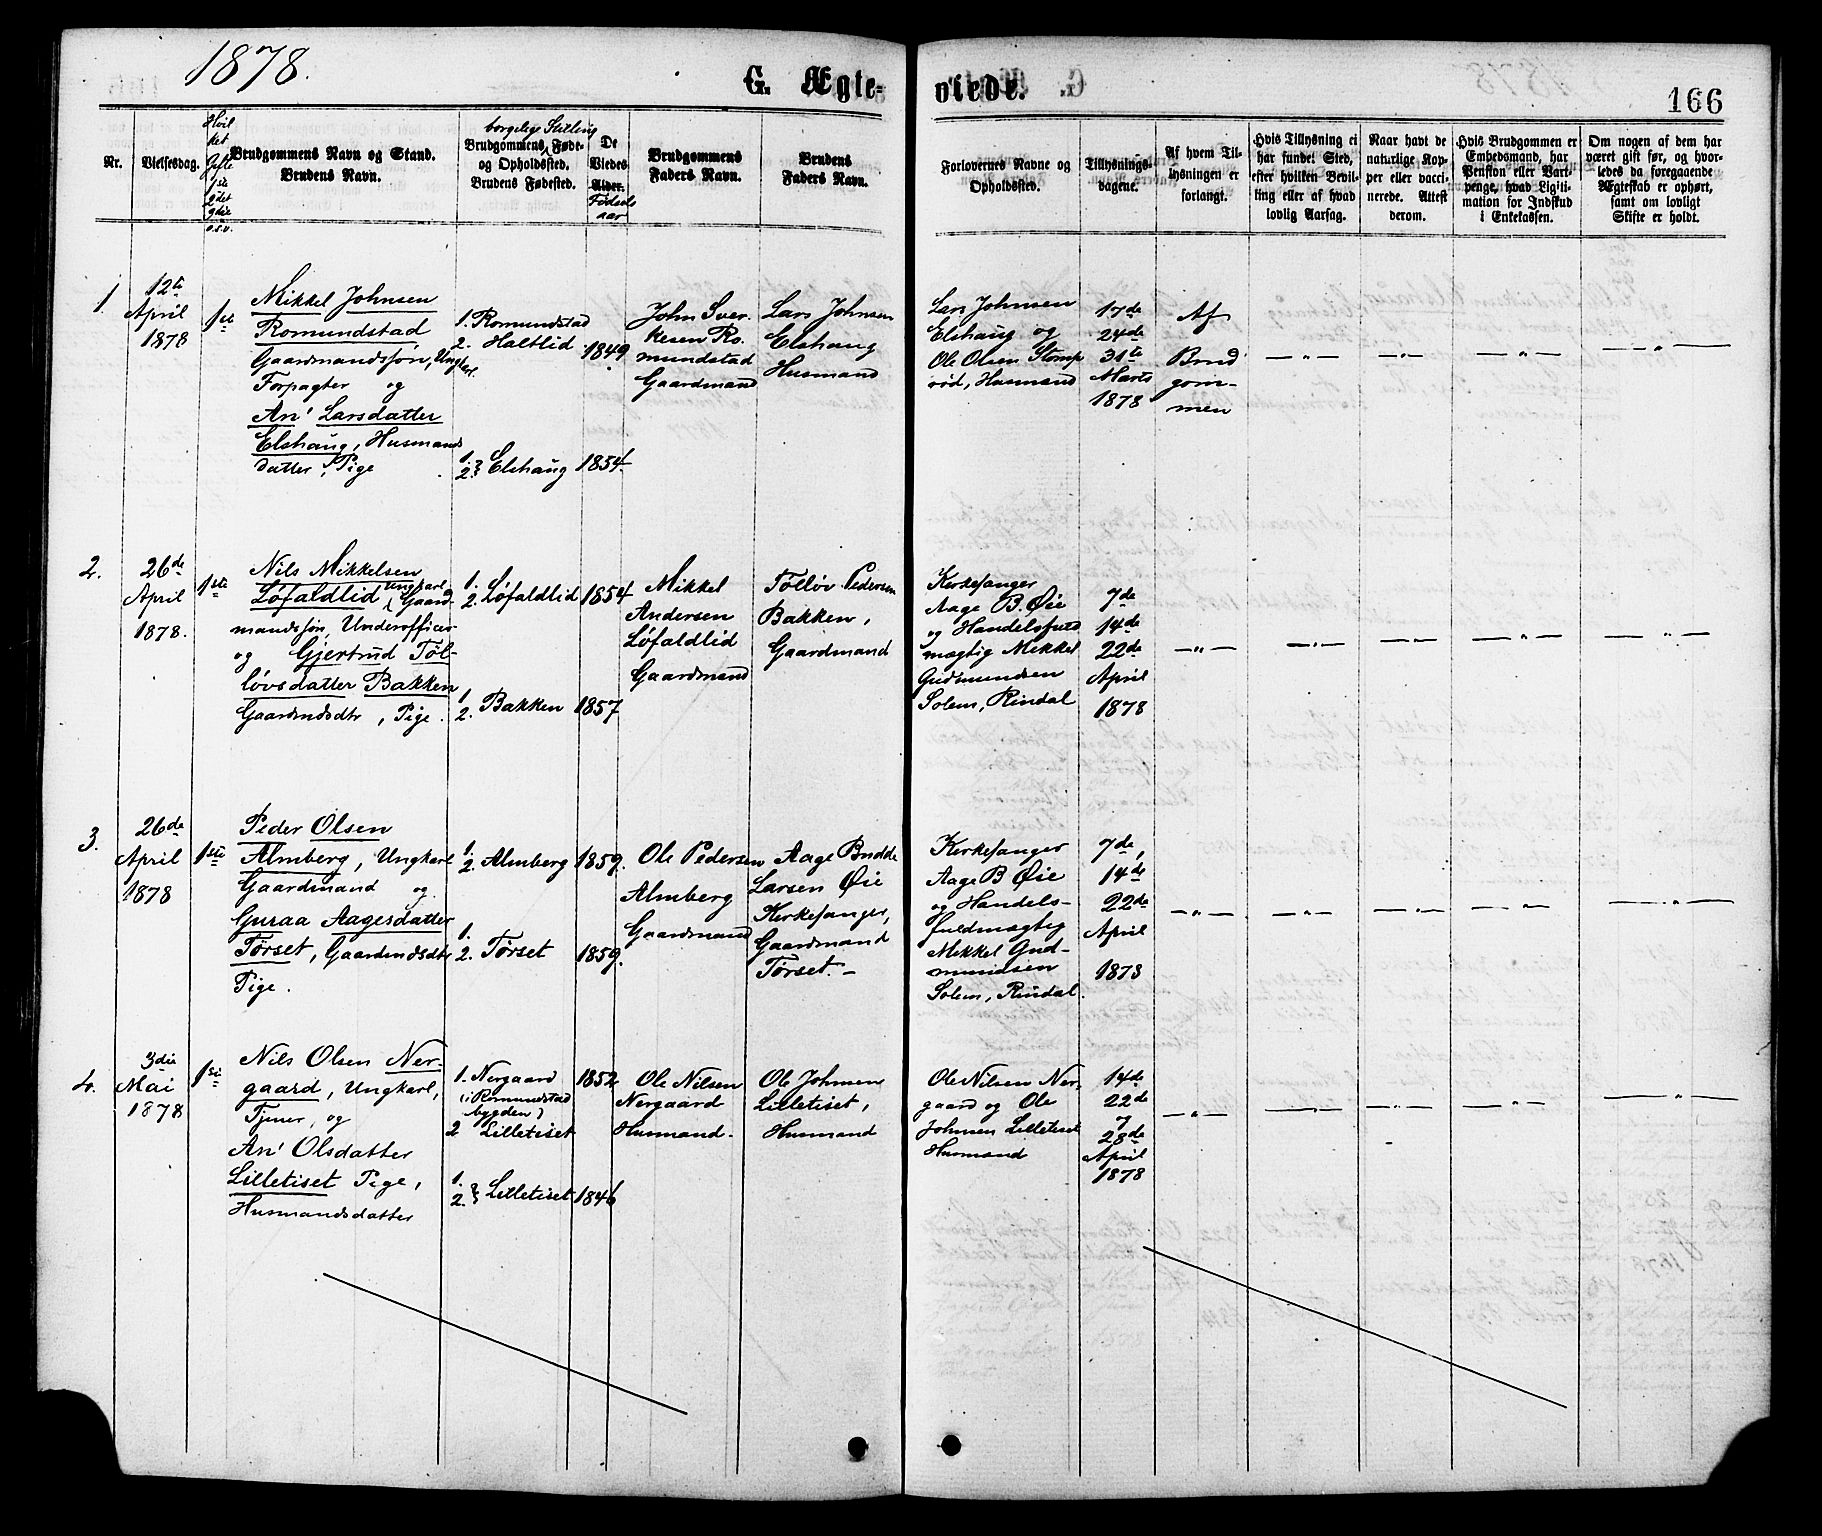 1878.
G. Ægte-
viede.
166
Nr.
Vielsesdag.
Hvil
ket
Gifte
1ste
2det
3die
o.s.v.
Brudgommens Navn og Stand.
Brudens Navn.
borgelige Stilling
Brudgommens Føde-
og Opholdssted.
Brudens Fødested.
De
Viedes
Alder.
Fødsels
aar
Brudgommens
Faders Navn.
Brudens
Faders Navn.
Forlovernes Navne og
Opholdssted.
Tillysnings-
dagene.
Af hvem Til-
lysningen er
forlangt.
Hvis Tillysning ei
har fundet Sted,
efter hvilken Bevil-
ling eller af hvad
lovlig Aarsag.
Naar havt de
naturlige Kop-
per eller vacci-
nerede. Attest
derom.
Hvis Brudgommen er
Embedsmand, har
Pension eller Vart-
penge, hvad Legiti-
mation for Indskud
i Enkekassen.
Om nogen af dem har
været gift før, og hvor-
ledes da foregaaende
Ægteskab er ophørt,
samt om lovligt
Skifte er holdt.
1
12te
April
1878
1ste
Mikkel Johnsen
Romundstad
Gaardmandssøn, Ungkarl.
Forpagter og
An' Larsdatter
Elshaug, Husmands
datter, Pige
1. Romundstad
2. Haltlid
1849.
1.
2. } Elshaug
1854.
John Sver-
kesen Ro-
mundstad
Gaardmand
Lars Johnsen
Elshaug
Husmand
Lars Johnsen
Elshaug og
Ole Olsen Stomp
rød, Husmand
17de
24de
31te
Marts
1878
Af
Brud
gom-
men
— „ —
— „ —
— „ —
— „ —
2.
26de
April
1878.
1ste
Nils Mikkelsen
Løfaldlid, Ungkarl, Gaard-
mandssøn, Underofficer
og Gjertrud Tøl-
løvsdatter Bakken
Gaardmdsdtr, Pige.
1.
2. Løfaldlid
1854
1
2. Bakken
1857
Mikkel
Andersen
Løfaldlid
Gaardmand
Tølløv Pedersen
Bakken,
Gaardmand
Kirkesanger
Aage B. Øie
og Handelsfuld
mægtig Mikkel
Gudmundsen
Solem, Rindal
7de
14de
22de
April
1878
— „ —
— „ —
— „ —
— „ —
— „ —
3.
26de
April
1878
1ste
Peder Olsen
Almberg, Ungkarl
Gaardmand og
Guraa Aagesdatter
Tørset, Gaardmdsdtr
Pige.
1.
2. Almberg
1859.
1.
2. Tørset
1859.
Ole Pedersen
Almberg
Gaardmand
Aage Budde
Larsen Øie
Kirkesanger,
Gaardmand
Tørset. –
Kirkesanger
Aage B Øie
og Handels-
fuldmægtig
Mikkel Gud-
mundsen
Solem, Rindal.
7de,
14de
22de
April
1878
— „ —
— „ —
— „ —
— „ —
— „ —
4.
3die
Mai
1878
1ste
Nils Olsen Ner-
gaard, Ungkarl,
Tjener, og
An' Olsdatter
Lilletiset Pige,
Husmandsdatter
1. Nergaard
(i Romundstad
bygden)
2 Lilletiset
1852
1.
2. } Lilletiset
1846
Ole Nilsen
Nergaard
Husmand.
Ole Johnsen
Lilletiset,
Husmand
Ole Nilsen Ner-
gaard og Ole
Johnsen Lilletiset
Husmænd
14de
22de
og
28de
April
1878
— „ —
— „ —
— „ —
— „ —
— „ —